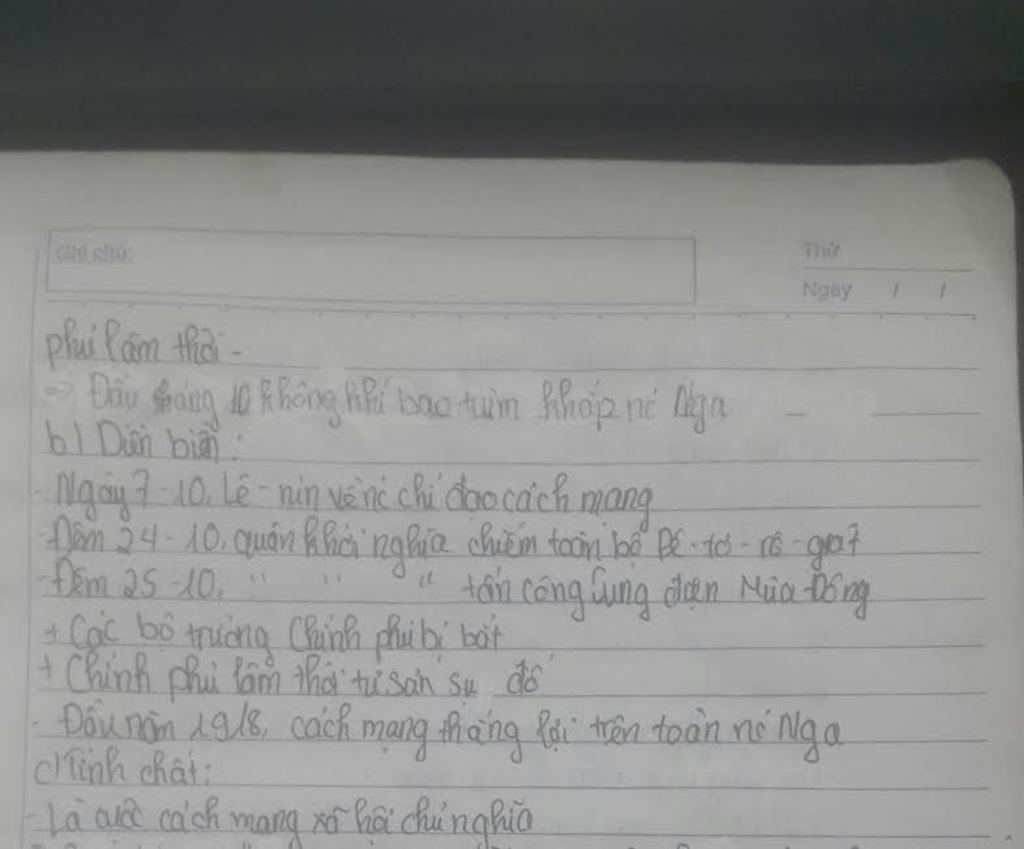 Ghi chú:
Thứ
Ngày / /
phủ lâm thời -
=> Đầu tháng 10 không khí bao trùm khắp nc Nga
b) Diễn biến:
- Ngày 7-10, Lê-nin về nc chỉ đạo cách mạng
- Đêm 24-10, quân khởi nghĩa chiếm toàn bộ Pê-tơ-rô-grat
- Đêm 25-10, " " " tấn công Cung điện Mùa Đông
+ Các bộ trưởng Chính phủ bị bắt
+ Chính phủ lâm thời tư sản sụ đổ
- Đầu năm 1918, cách mạng thắng lợi trên toàn nc Nga
c) Tính chất:
- Là cuộc cách mạng xã hội chủ nghĩa